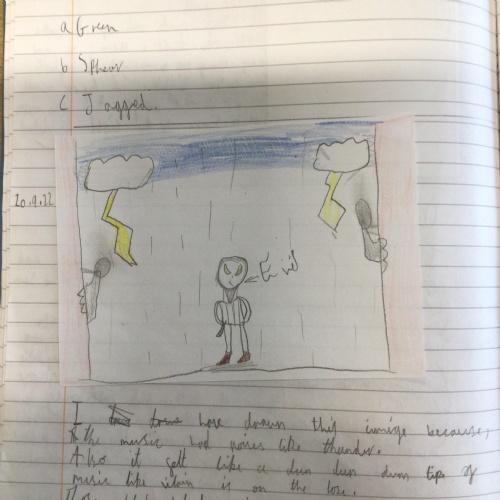 a Green
b Sphear
c Jagged.
20.9.22
Evil
I have drawn this image because,
the music had noises like thunder.
Also it felt like a dun dun dun tip of
music like vilain is on the lose.